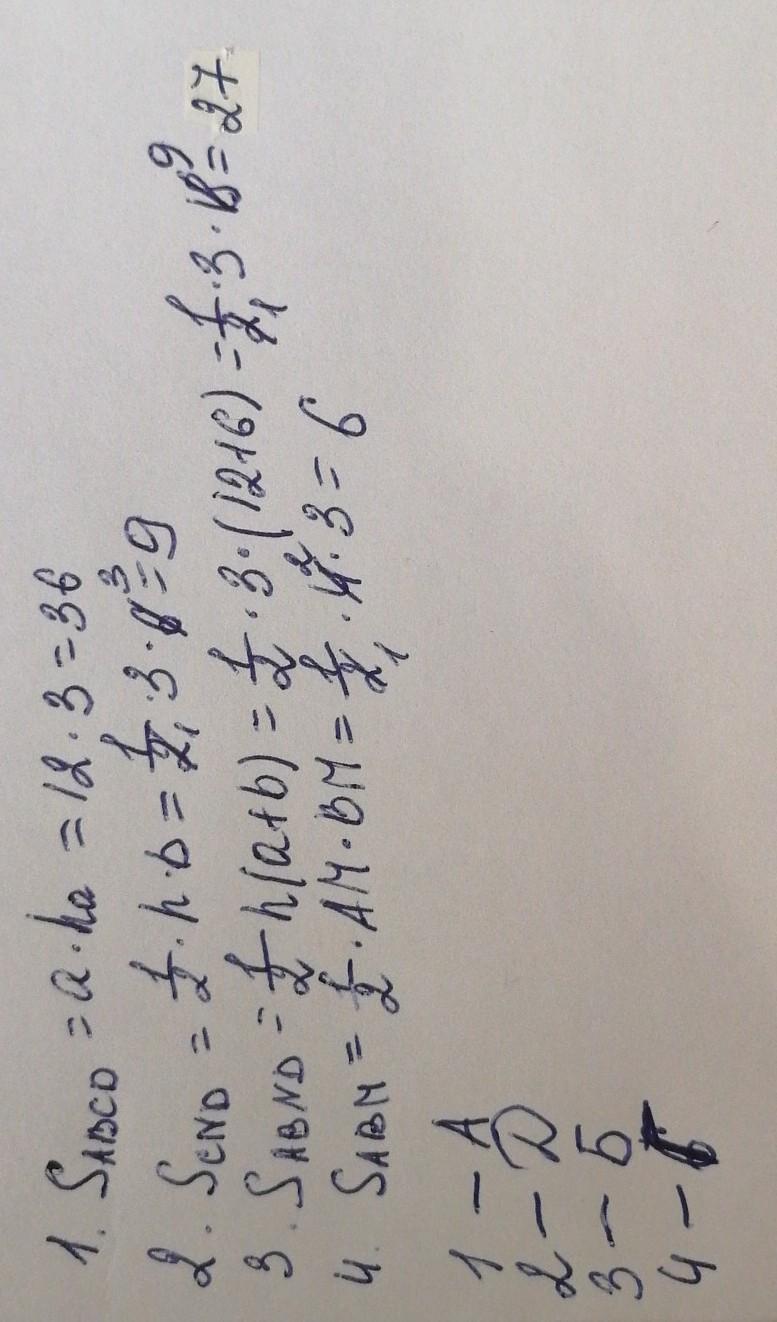 1. S_ABCD = a · h_a = 12 · 3 = 36
2. S_CND = 1/2 · h · b = 1/2 1 · 3 · 6 3 = 9
3. S_ABND = 1/2 h(a+b) = 1/2 · 3 · (12+6) = 1/2 1 · 3 · 18 9 = 27
4. S_ABM = 1/2 · AM · BM = 1/2 1 · 4 2 · 3 = 6
1 – А
2 – Д
3 – Б
4 –